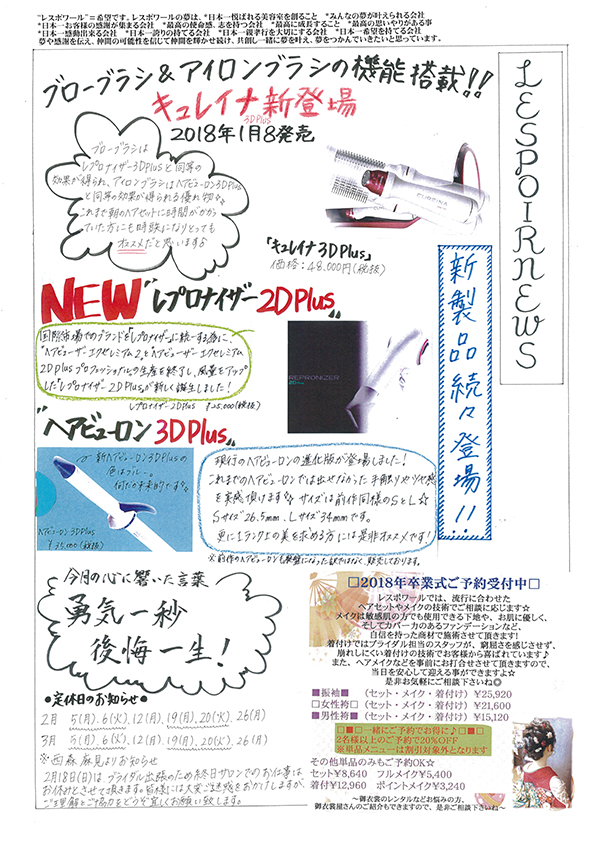 "レスポワール"=希望です。レスポワールの夢は、*日本一悦ばれる美容室を創ること　*みんなの夢が叶えられる会社
*日本一お客様の感謝が集まる会社　*最高の使命感、志を持つ会社　*最高に成長すること　*最高の思いやりがある事
*日本一感動出来る会社　*日本一誇りの持てる会社　*日本一親孝行を大切にする会社　*日本一希望を持てる会社
夢や感謝を伝え、仲間の可能性を信じて仲間を輝かせ続け、共創し一緒に夢を叶え、夢をつかんでいきたいと思っています。
LESPOIRNEWS
ブローブラシ&アイロンブラシの機能搭載!!
キュレイナ新登場
3DPlus
2018年1月8発売
ブローブラシは
レプロナイザー3DPlusと同等の
効果が得られ、アイロンブラシはヘアビューロン3DPlus
と同等の効果が得られる優れ物☆
これまで朝のヘアセットに時間がかかっ
ていた方にも時短になりとっても
オススメだと思います♪
「キュレイナ3DPlus」
価格:48,000円(税抜)
新製品続々登場!!
NEW"レプロナイザー2DPlus"
国際市場でのブランドを「レプロナイザー」に統一する為に、
"ヘアビューザーエクセレミアム2"と"ヘアビューザーエクセレミアム
2DPlusプロフェッショナル"の生産を終了し、風量をアップ
した"レプロナイザー2DPlus"が新しく誕生しました!
レプロナイザー2DPlus　¥25,000(税抜)
REPRONIZER
"ヘアビューロン3DPlus"
新ヘアビューロン3DPlusの
色はブルー。
何だか未来的です☆
ヘアビューロン3DPlus
¥35,000(税抜)
現行のヘアビューロンの進化版が登場しました!
これまでのヘアビューロンでは出せなかった手触りやツヤ感
を実感頂けます☆サイズは前作同様のSとL☆
Sサイズ26.5mm、Lサイズ34mmです。
更に1ランク上の美を求める方には是非オススメです!
※前作のヘアビューロンも廃盤になった訳ではなく、販売しております。
今月の心に響いた言葉
勇気一秒
後悔一生!
●定休日のお知らせ●
2月　5(月).6(火).12(月).19(月).20(火).26(月)
3月　5(月).6(火).12(月).19(月).20(火).26(月)
※西森麻見よりお知らせ
2月18日(日)は、ブライダル出張のため終日サロンでのお仕事は
お休みとさせて頂きます。皆様には大変ご迷惑をおかけしますが、
ご理解とご協力をどうぞ宜しくお願い致します。
□2018年卒業式ご予約受付中□
レスポワールでは、流行に合わせた
ヘアセットやメイクの技術でご相談に応じます☆
メイクは敏感肌の方でも使用できる下地や、お肌に優しく、
そしてカバー力のあるファンデーションなど、
自信を持った商材で施術させて頂きます!
着付けではブライダル担当のスタッフが、窮屈さを感じさせず、
崩れしにくい着付けの技術でお客様から喜ばれています♪
また、ヘアメイクなどを事前にお打合せさせて頂きますので、
当日を安心して迎える事ができますよ☆
是非お気軽にご相談下さいね◎
■振袖■　(セット・メイク・着付け) ¥25,920
□女性袴□　(セット・メイク・着付け) ¥21,600
■男性袴■　(セット・メイク・着付け) ¥15,120
□■□一緒にご予約でお得に♪□■□
2名様以上のご予約で20%OFF
※単品メニューは割引対象外となります
その他単品のみもご予約OK☆
セット¥8,640　フルメイク¥5,400
着付¥12,960　ポイントメイク¥3,240
～御衣裳のレンタルなどお悩みの方、
御衣裳屋さんのご紹介もできますので、是非ご相談下さいね～